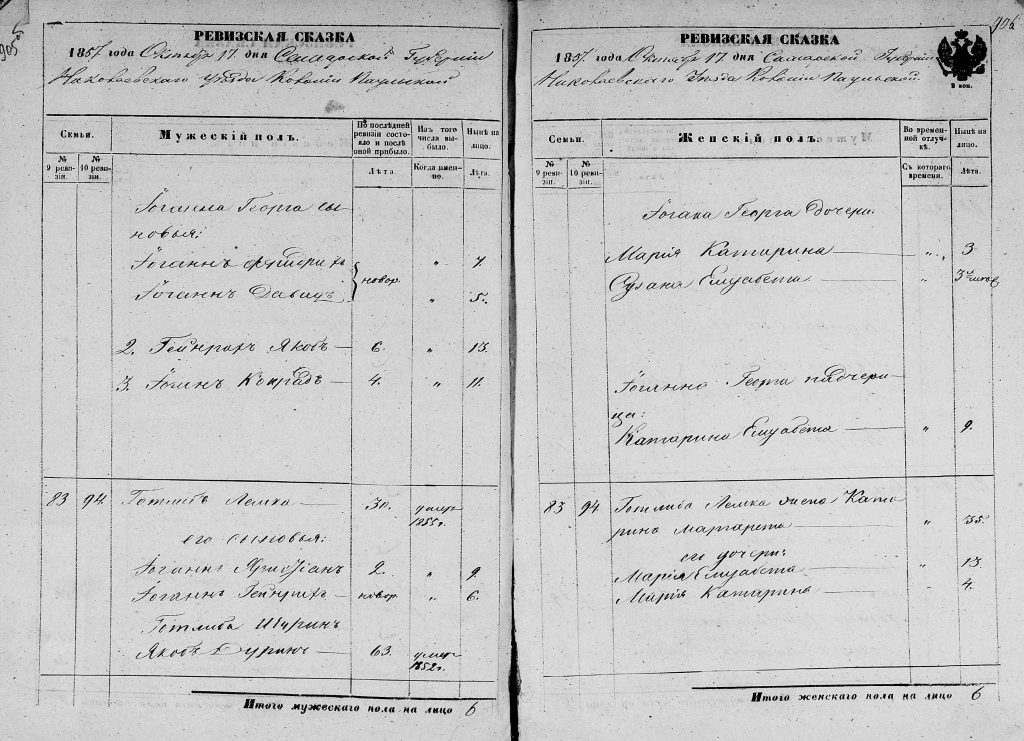 905
РЕВИЗСКАЯ СКАЗКА
1857 года Октября 17 дня Самарской Губернии
Николаевского уезда Колонии Паульской
Семьи.
Мужескій полъ.
По последней ревизіи состояло и после оной прибыло.
Изъ того числа выбыло.
Ныне на лицо.
№ 9 ревизіи.
№ 10 ревизіи.
Лѣта.
Когда именно.
Лѣта.
Іоганна Георга сы-
новья:
Іоганнъ Фридрихъ " 7.
новор.
Іоганнъ Давидъ " 5.
2. Гейнрихъ Якобъ — 6. " 13.
3. Іоганъ Конрадъ — 4. " 11.
83 94 Готлибъ Лемка — 30. умер. 1855 г.
его сыновья:
Іоганнъ Христіанъ 2. " 9.
Іоганнъ Гейнрихъ — новор. " 6.
Готлиба Шуринъ
Якобъ — 63. умер. 1852 г.
Итого мужескаго пола на лицо 6
906
РЕВИЗСКАЯ СКАЗКА
1857 года Октября 17 дня Самарской Губерніи
Николаевского Уезда Колоніи Паульской
2 коп.
Семьи.
Женскій полъ.
Во временной отлучкѣ.
Ныне на лицо.
№ 9 ревизіи.
№ 10 ревизіи.
Съ котораго времени.
Лѣта.
Іогана Георга дочери:
Марія Катарина — " 3.
Сузана Елизабета — "
Іоганна Георга падчери-
ца:
Катарина Елизабета — " 9.
83 94 Готлиба Лемка жена Ката
рина Маргарета — " 35.
его дочери:
Марія Елизабета — " 13.
Марія Катарина — " 4.
Итого женскаго пола на лицо 6